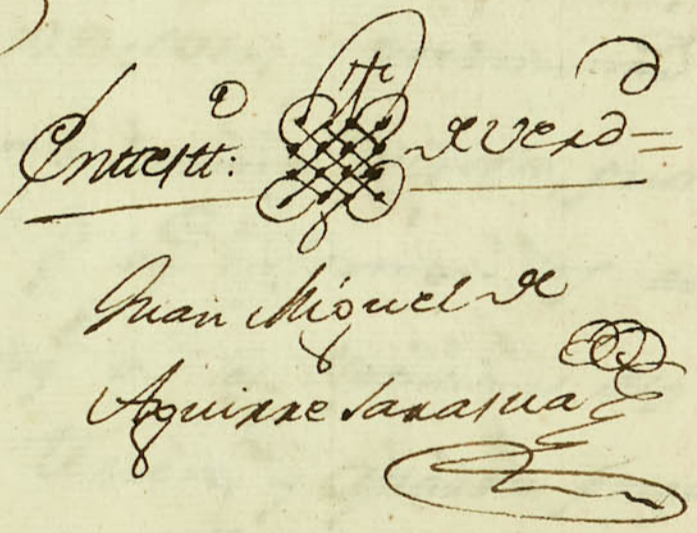 Enttestt:º de verdᵈ=
Juan Miguel de
Aguirre Sarasua